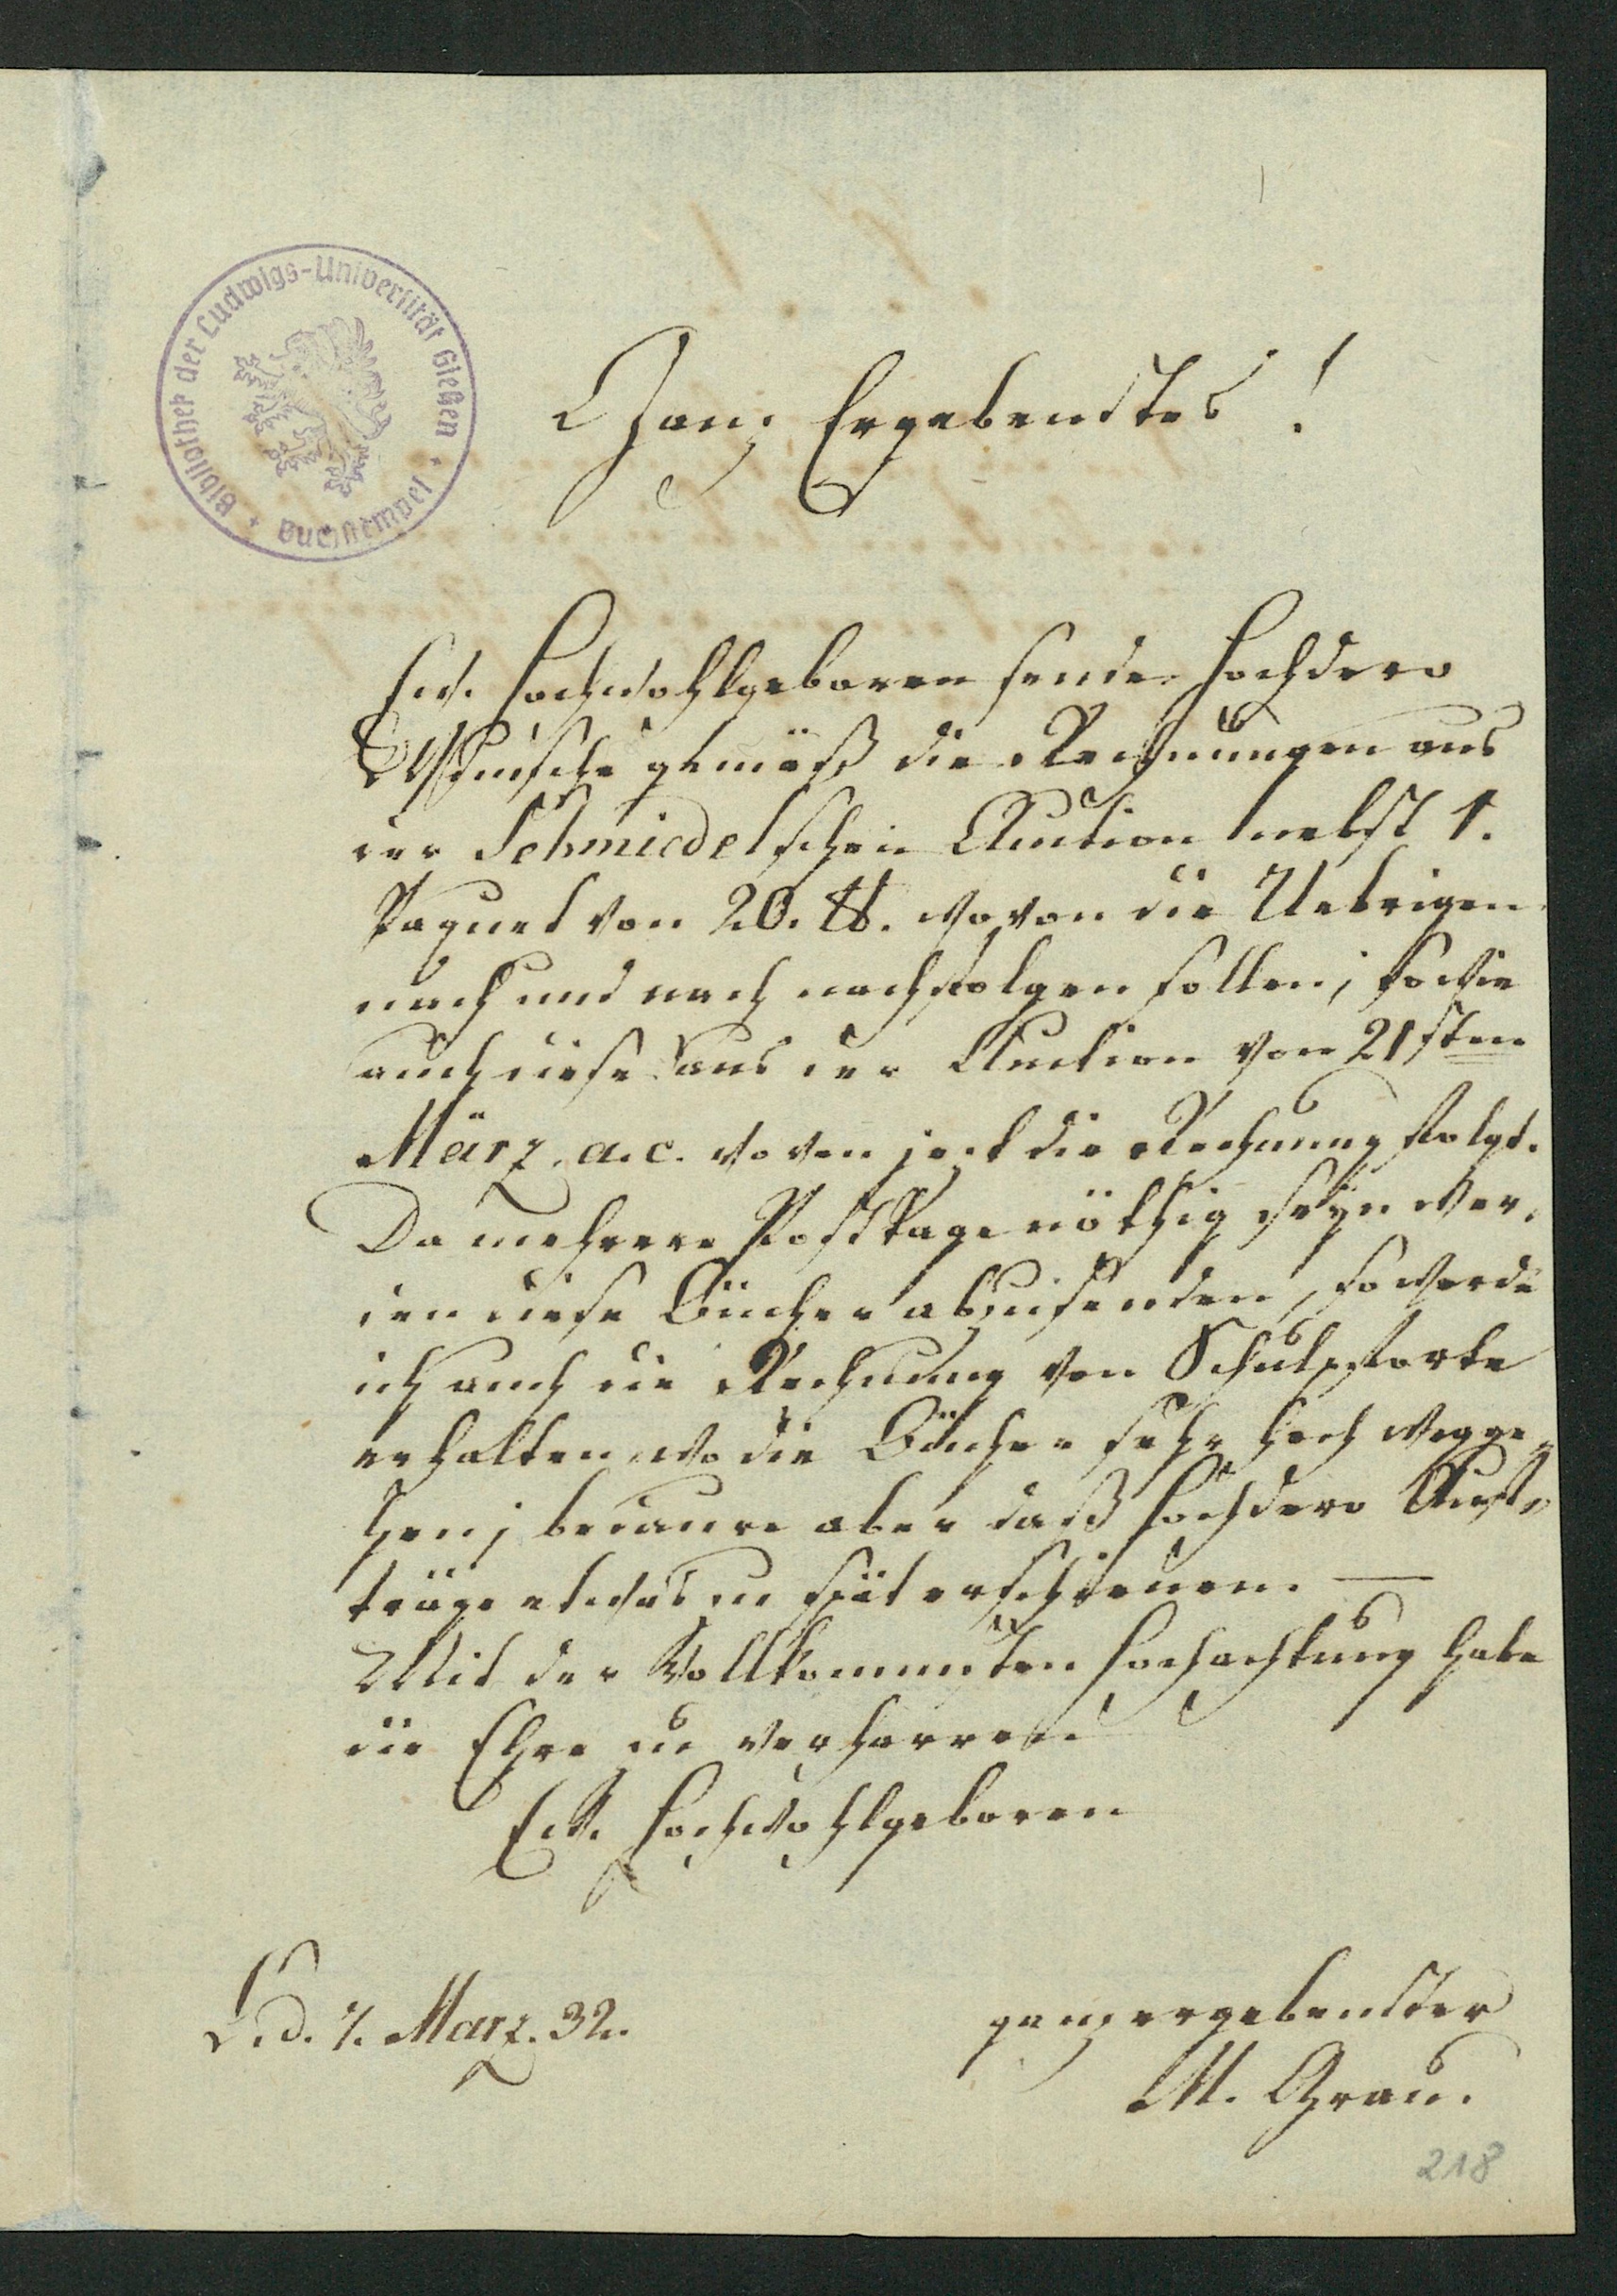 Bibliothek der Ludwigs-Universität Gießen
* Buchstempel *
Ganz Ergebenstes!
Ew. Hochwohlgeboren sende Hochdero
Wunsche gemäß die Rechnungen aus
der Schmiedelschen Auction nebst 1.
Paquet von 20. ℔. wovon die Uebrigen
nach und nach nachfolgen sollen; sowie
auch diese aus der Auction von 21sten
März. a.c. wovon jezt die Rechnung folgt.
Da mehrere Posttage nöthig seyn wer,
den diese Bücher abzusenden, so werde
ich auch die Rechnung von Schulpforte
erhalten, wo die Bücher sehr hoch wegge,,
hen; bedaure aber daß Hochdero Auf,,
träge etwas zu spät erschienen. —
Mit der Vollkommsten Hochachtung habe
die Ehre zu verharren
Ew. Hochwohlgeboren
d. 7. Marz. 32.
ganz ergebenster
M. Grau.
218